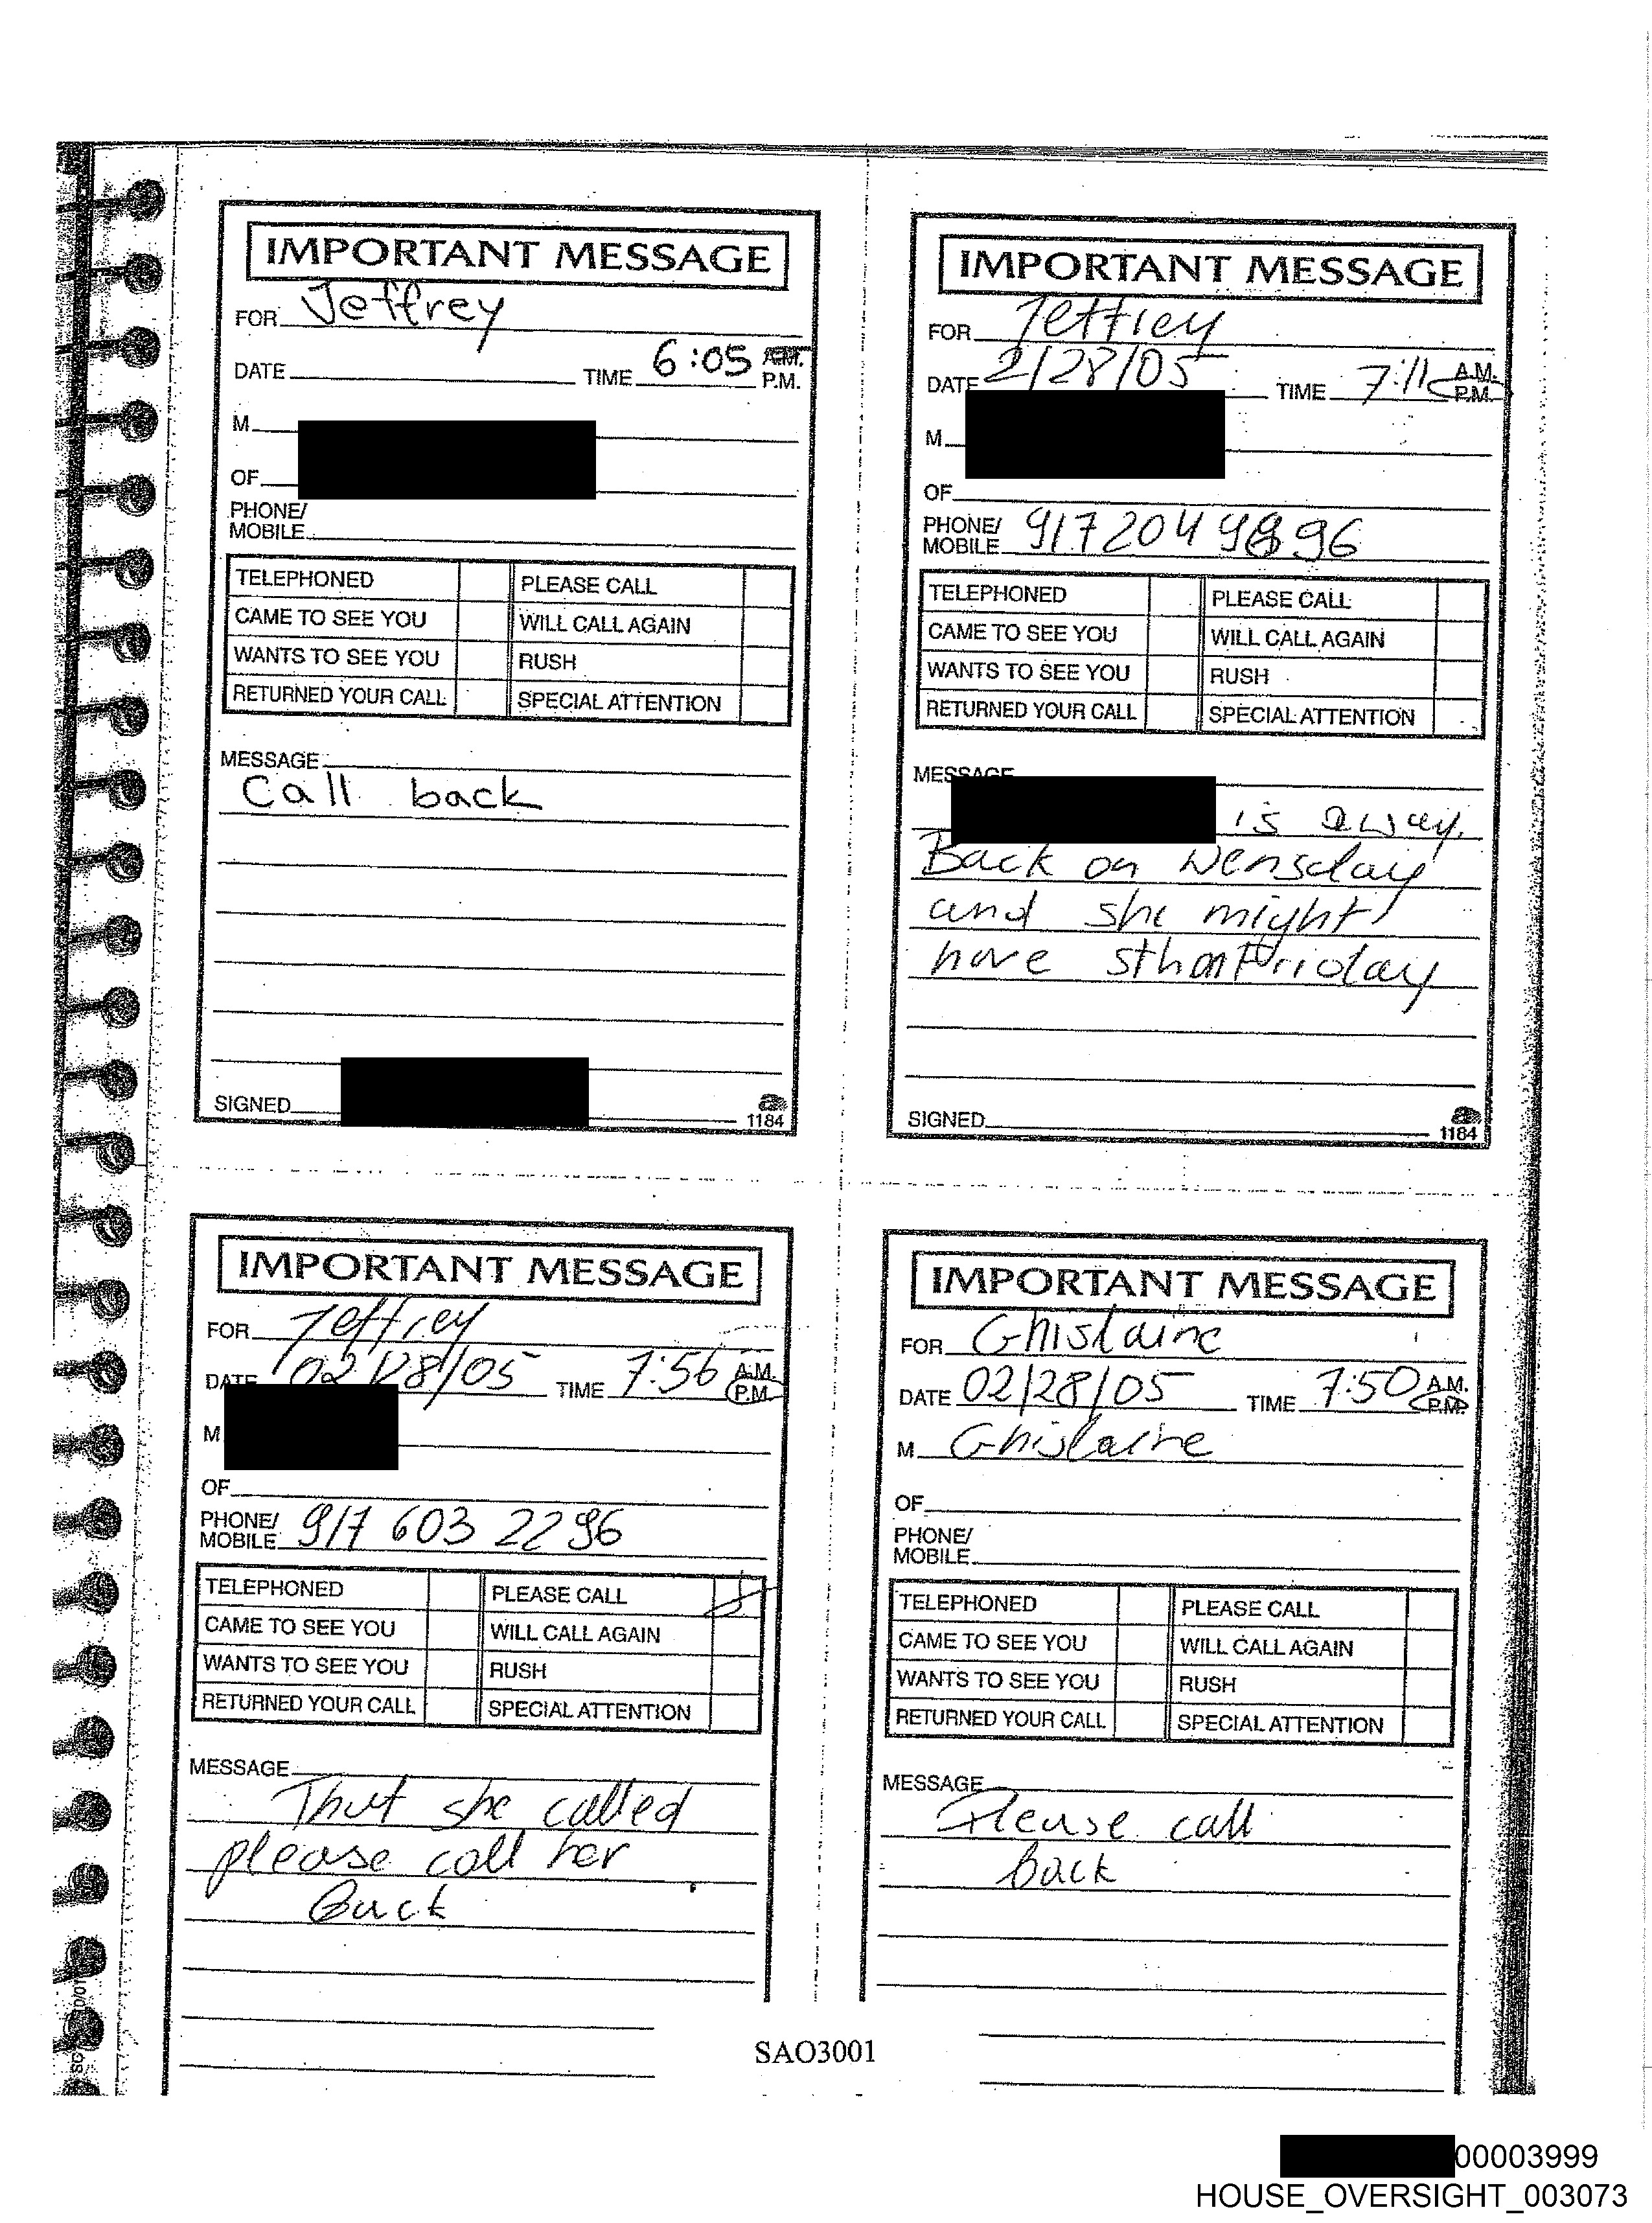 IMPORTANT MESSAGE
FOR Jeffrey
DATE TIME 6:05 A.M.
P.M.
M
OF
PHONE/
MOBILE
TELEPHONED PLEASE CALL
CAME TO SEE YOU WILL CALL AGAIN
WANTS TO SEE YOU RUSH
RETURNED YOUR CALL SPECIAL ATTENTION
MESSAGE
Call back
SIGNED
1184
IMPORTANT MESSAGE
FOR Jeffrey
DATE 2/28/05 TIME 7:11 A.M.
P.M.
M
OF
PHONE/
MOBILE 917 204 9896
TELEPHONED PLEASE CALL
CAME TO SEE YOU WILL CALL AGAIN
WANTS TO SEE YOU RUSH
RETURNED YOUR CALL SPECIAL ATTENTION
MESSAGE
is away.
Back on Wensday
and she might
have sth on Friday
SIGNED
1184
IMPORTANT MESSAGE
FOR Jeffrey
DATE 02/28/05 TIME 7:56 A.M.
P.M.
M
OF
PHONE/
MOBILE 917 603 2296
TELEPHONED PLEASE CALL
CAME TO SEE YOU WILL CALL AGAIN
WANTS TO SEE YOU RUSH
RETURNED YOUR CALL SPECIAL ATTENTION
MESSAGE
That she called
please call her
Back
IMPORTANT MESSAGE
FOR Ghislaine
DATE 02/28/05 TIME 7:50 A.M.
P.M.
M Ghislaine
OF
PHONE/
MOBILE
TELEPHONED PLEASE CALL
CAME TO SEE YOU WILL CALL AGAIN
WANTS TO SEE YOU RUSH
RETURNED YOUR CALL SPECIAL ATTENTION
MESSAGE
Please call
back
SAO3001
00003999
HOUSE_OVERSIGHT_003073